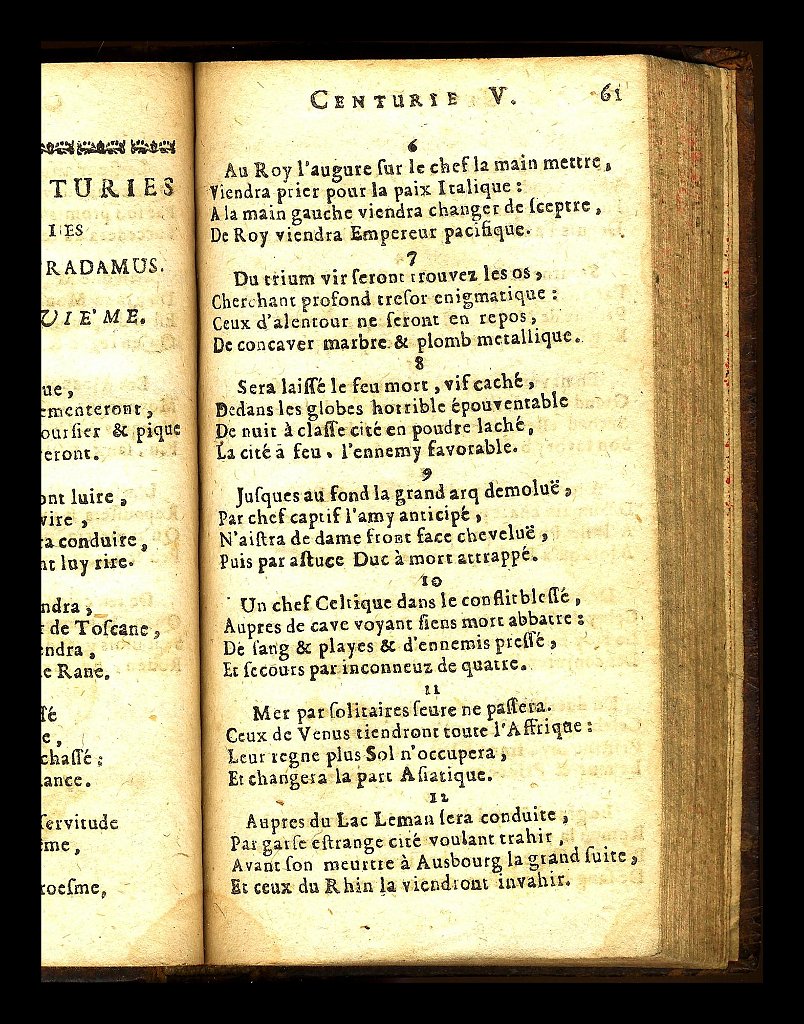 TURIES
RADAMUS.
ue,
ementeront,
oursier & pique
eront.
ont luire,
vire,
ra conduire,
nt luy rire.
ndra,
de Toscane,
endra,
e Rane.
ſé
e,
chaſſé:
lance.
ſervitude
ême,
roeſme,
CENTURIE V. 61
6
Au Roy l'augure ſur le chef la main mettre,
Viendra prier pour la paix Italique:
A la main gauche viendra changer de ſceptre,
De Roy viendra Empereur pacifique.
7
Du trium vir ſeront trouvez les os,
Cherchant profond treſor enigmatique:
Ceux d'alentour ne ſeront en repos,
De concaver marbre & plomb metallique.
8
Sera laiſſé le feu mort, vif caché,
Dedans les globes horrible épouventable
De nuit à claſſe cité en poudre laché,
La cité à feu, l'ennemy favorable.
9
Juſques au fond la grand arq demoluë,
Par chef captif l'amy anticipé,
N'aiſtra de dame front face cheveluë,
Puis par aſtuce Duc à mort attrappé.
10
Un chef Celtique dans le conflit bleſſé,
Aupres de cave voyant ſiens mort abbatre:
De ſang & playes & d'ennemis preſſé,
Et ſecours par inconneuz de quatre.
11
Mer par ſolitaires ſeure ne paſſera.
Ceux de Venus tiendront toute l'Affrique:
Leur regne plus Sol n'occupera,
Et changera la part Aſiatique.
12
Aupres du Lac Leman ſera conduite,
Par garſe eſtrange cité voulant trahir,
Avant ſon meurtre à Ausbourg la grand ſuite,
Et ceux du Rhin la viendront invahir.